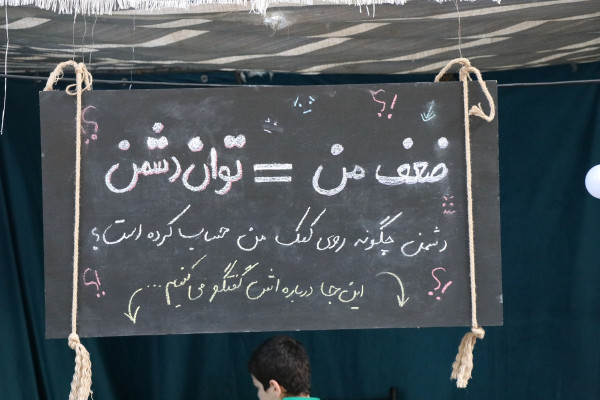 ضعف من = توان دشمن
دشمن چگونه روی کمک من حساب کرده است؟
این جا درباره اش گفتگو می کنیم...